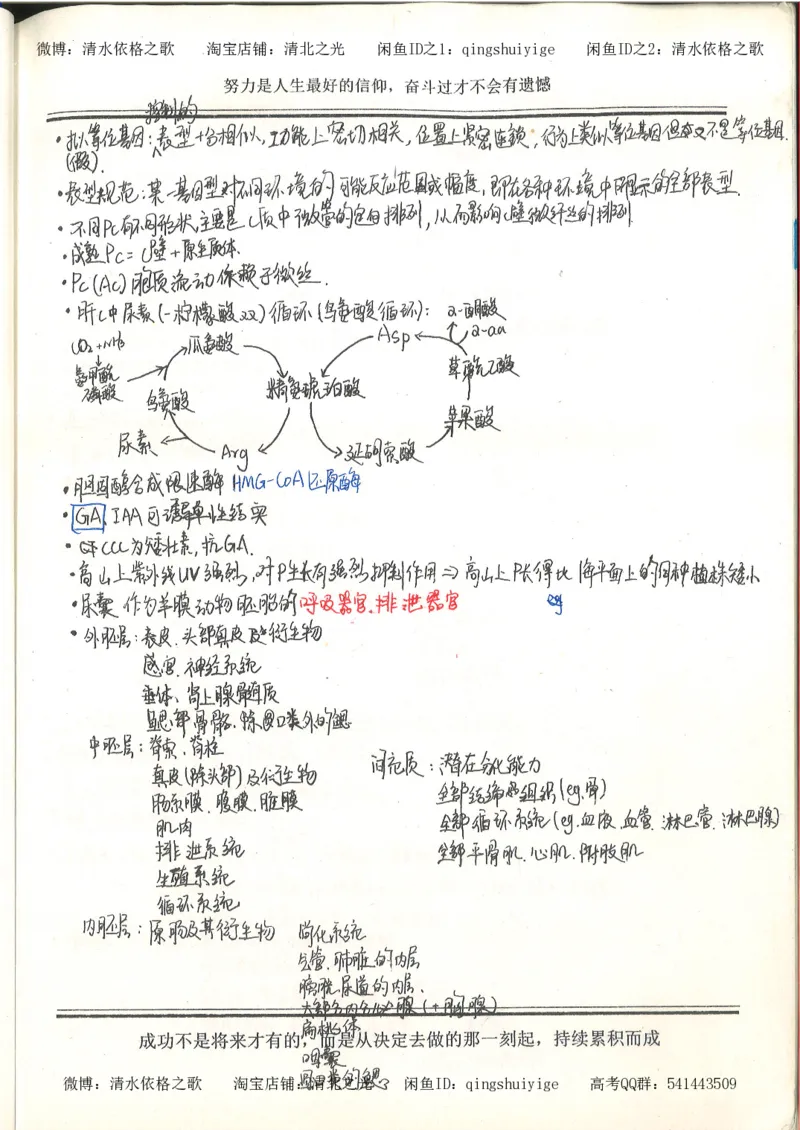 微博：清水依格之歌 淘宝店铺：清北之光 闲鱼ID之1：qingshuiyige 闲鱼ID之2：清水依格之歌
努力是人生最好的信仰，奋斗过才不会有遗憾
控制的
·拟等位基因：表型十分相似，功能上密切相关，位置上紧密连锁，行为上类似等位基因但本文不是等位基因.
(假).
·表型规范：某一基因型对不同环境的可能反应范围或幅度，即在各种环境中所显示的全部表型.
·不同Pc有不同形状，主要是C质中微管的包围排列，从而影响C壁微纤丝的排列
·成熟Pc=C壁+原生质体.
·Pc(Ac)胞质流动依赖于微丝.
·肝C中尿素(-柠檬酸双)循环(鸟氨酸循环)：
α-酮酸
α-aa
CO₂+NH₃
氨甲酰磷酸
瓜氨酸
鸟氨酸
尿素
Arg
精氨琥珀酸
Asp
草酰乙酸
苹果酸
延胡索酸
·胆固醇合成限速酶 HMG-CoA还原酶
·GA、IAA可诱导单性结实
·CCC为矮壮素，抗GA.
·高山上紫外线UV强烈，对P生长有强烈抑制作用⇒高山上P长得比海平面上的同种植株矮小
·尿囊 作为羊膜动物胚胎的呼吸器官.排泄器官
eg
·外胚层：表皮.头部真皮及衍生物
感官.神经系统
垂体、肾上腺髓质
鳃部骨骼.除圆口类外的鳃
中胚层：脊索.脊柱
真皮(除头部)及衍生物
肠系膜.腹膜.脏膜
肌肉
排泄系统
生殖系统
循环系统
间充质：潜在分化能力
全部结缔组织(eg.骨)
全部循环系统(eg.血液.血管.淋巴管.淋巴腺)
全部平滑肌.心肌.附肢肌
内胚层：原肠及其衍生物 消化系统
气管.肺脏的内层
膀胱.尿道的内层.
大部分内分泌腺(+胸腺)
扁桃体
咽囊
圆口类的鳃
成功不是将来才有的，而是从决定去做的那一刻起，持续累积而成
微博：清水依格之歌 淘宝店铺：清北之光 3 闲鱼ID：qingshuiyige 高考QQ群：541443509